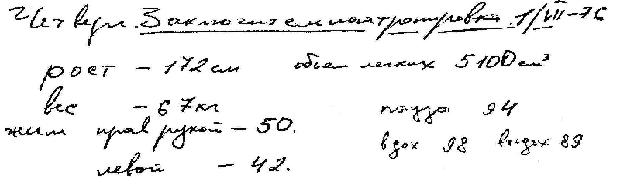 Четверг Заключительная тренировка 1/VII-76
рост - 172 см объем легких 5100 см³
вес - 67 кг пауза 94
жим прав рукой - 50. вдох 98 выдох 89
левой - 42.